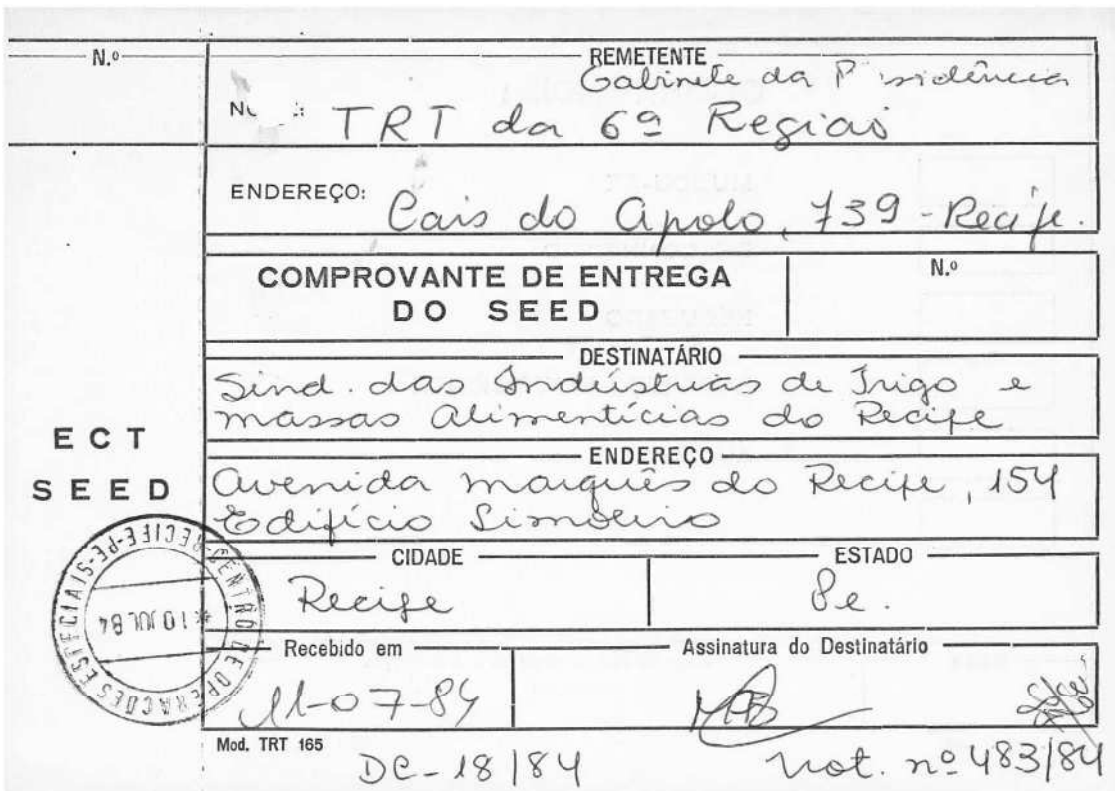 N.º
REMETENTE
Gabinete da P sidência
TRT da 6ª Região
ENDEREÇO: Cais do Apolo, 739 - Recife.
COMPROVANTE DE ENTREGA
DO SEED
N.º
DESTINATÁRIO
Sind. das Indústrias de Trigo e
massas Alimentícias do Recife
ECT
SEED
ENDEREÇO
Avenida Marquês do Recife, 154
Edifício Limoeiro
CIDADE
Recife
ESTADO
Pe.
CENTRO DE OPERAÇÕES ESPECIAIS-RECIFE-PE
*10 JUL 84
Recebido em
11-07-84
Assinatura do Destinatário
Mod. TRT 165
DC-18/84
Not. nº 483/84